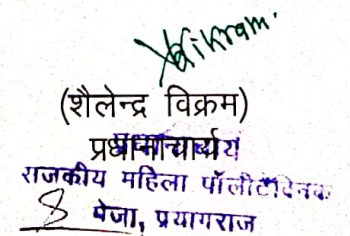 Vikram.
(शैलेन्द्र विक्रम)
प्रधानाचार्य
राजकीय महिला पॉलीटेक्निक
मेजा, प्रयागराज